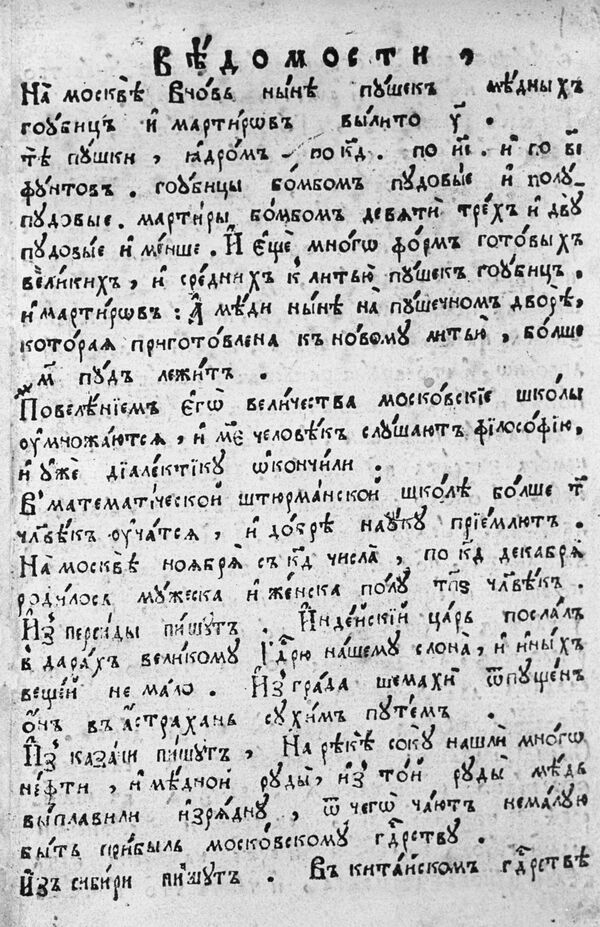 Вѣ́домости,
На̀ москвѣ̀ Вновь ны́нѣ пу́шекъ мѣ́дныхъ
гоубицъ и҆ мартиршвъ вы́лито у҃.
тѣ̀ пушки, ꙗ҆дромъ – по к҃д. по и҃і. и҆ по в҃і
фунтовъ. гоуби́цы бо́мбомъ пудовы́е и҆ полу-
пудовые. марти́ры бо́мбомъ девятѝ тре́хъ и҆ двꙋ
пудовы́е и҆ ме́нше. И҆ е҆щѐ мно́гѡ фо́рмъ гото́выхъ
вели́кихъ, и҆ сре́днихъ к̾ литью̀ пу́шекъ гоуби́цъ.
и҆ марти́рѡвъ: А҆ мѣ́ди ны́нѣ на̀ пу́шечномъ дворѣ̀,
кото́рая приготовлена къ но́вому литью̀, бо́лше
м҃ пу́дъ лежи́тъ.
Повелѣ́нїемъ е҆гѡ̀ вели́чества моско́вскїе шко́лы
оумножа́ются, и҆ м҃е человѣ́къ слу́шаютъ фїлосо́фїю,
и҆ ужѐ дїале́ктїку ѡ҆ко́нчили.
В̾ математи́ческой штюрма́нской шко́лѣ бо́лше т҃
чл҃вѣкъ оу́чатся, и҆ до́брѣ нау́ку прїе́млютъ.
На̀ москвѣ̀ ноября̀ съ к҃д числа̀, по к҃д декабря̀
роди́лось му́жеска и҆ же́нска полу т҃п҃ѕ чл҃вѣ́къ.
И҆з̾ персиды пи́шутъ. И҆нде́йскїй ца́рь посла́лъ
в̾ дара́хъ вели́кому Гдⷭ҇рю на́шему слона̀, и҆ и҆ны́хъ
веще́й не ма́ло. И҆з̾ гра́да шемахѝ ѿпу́щенъ
о҆́нъ въ а҆́страхань сухи́мъ путе́мъ.
И҆з̾ каза́ни пи́шутъ, На̀ рѣкѣ̀ со́ку нашлѝ мно́гѡ
не́фти, и҆ мѣ́дной руды̀, и҆з̾ то́й руды̀ мѣ́дь
вы́плавили и҆зря́дну, ѿ чегѡ̀ ча́ютъ нема́лую
бы́ть при́быль моско́вскому гдⷭ҇рству.
И҆зъ сиби́ри пи́шутъ. Въ кита́йскомъ гдⷭ҇рствѣ